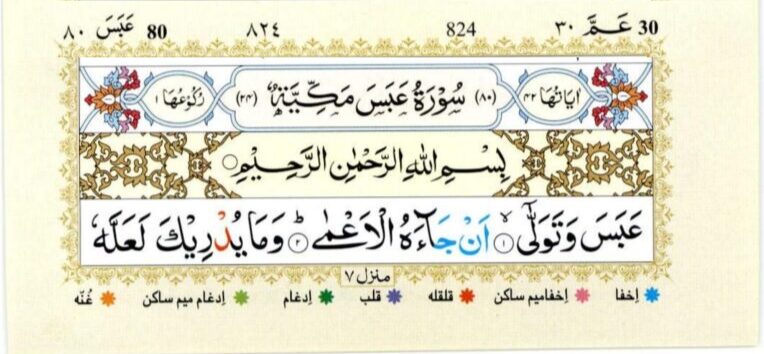 30 عَمَّ ٣٠ 824 ٨٢٤ 80 عَبَسَ ٨٠
اٰیَاتُهَا ٤٢ (٨٠) سُوْرَةُ عَبَسَ مَكِّیَّةٌ (٢٤) رُكُوْعُهَا ١
بِسْمِ اللّٰهِ الرَّحْمٰنِ الرَّحِیْمِ
عَبَسَ وَ تَوَلّٰۤىۙ ١ اَنْ جَآءَهُ الْاَعْمٰىؕ ٢ وَ مَا یُدْرِیْكَ لَعَلَّهٗ
منزل ٧
اِخفا اِخفامیم ساکن قلقله قلب اِدغام اِدغام میم ساکن غُنّه